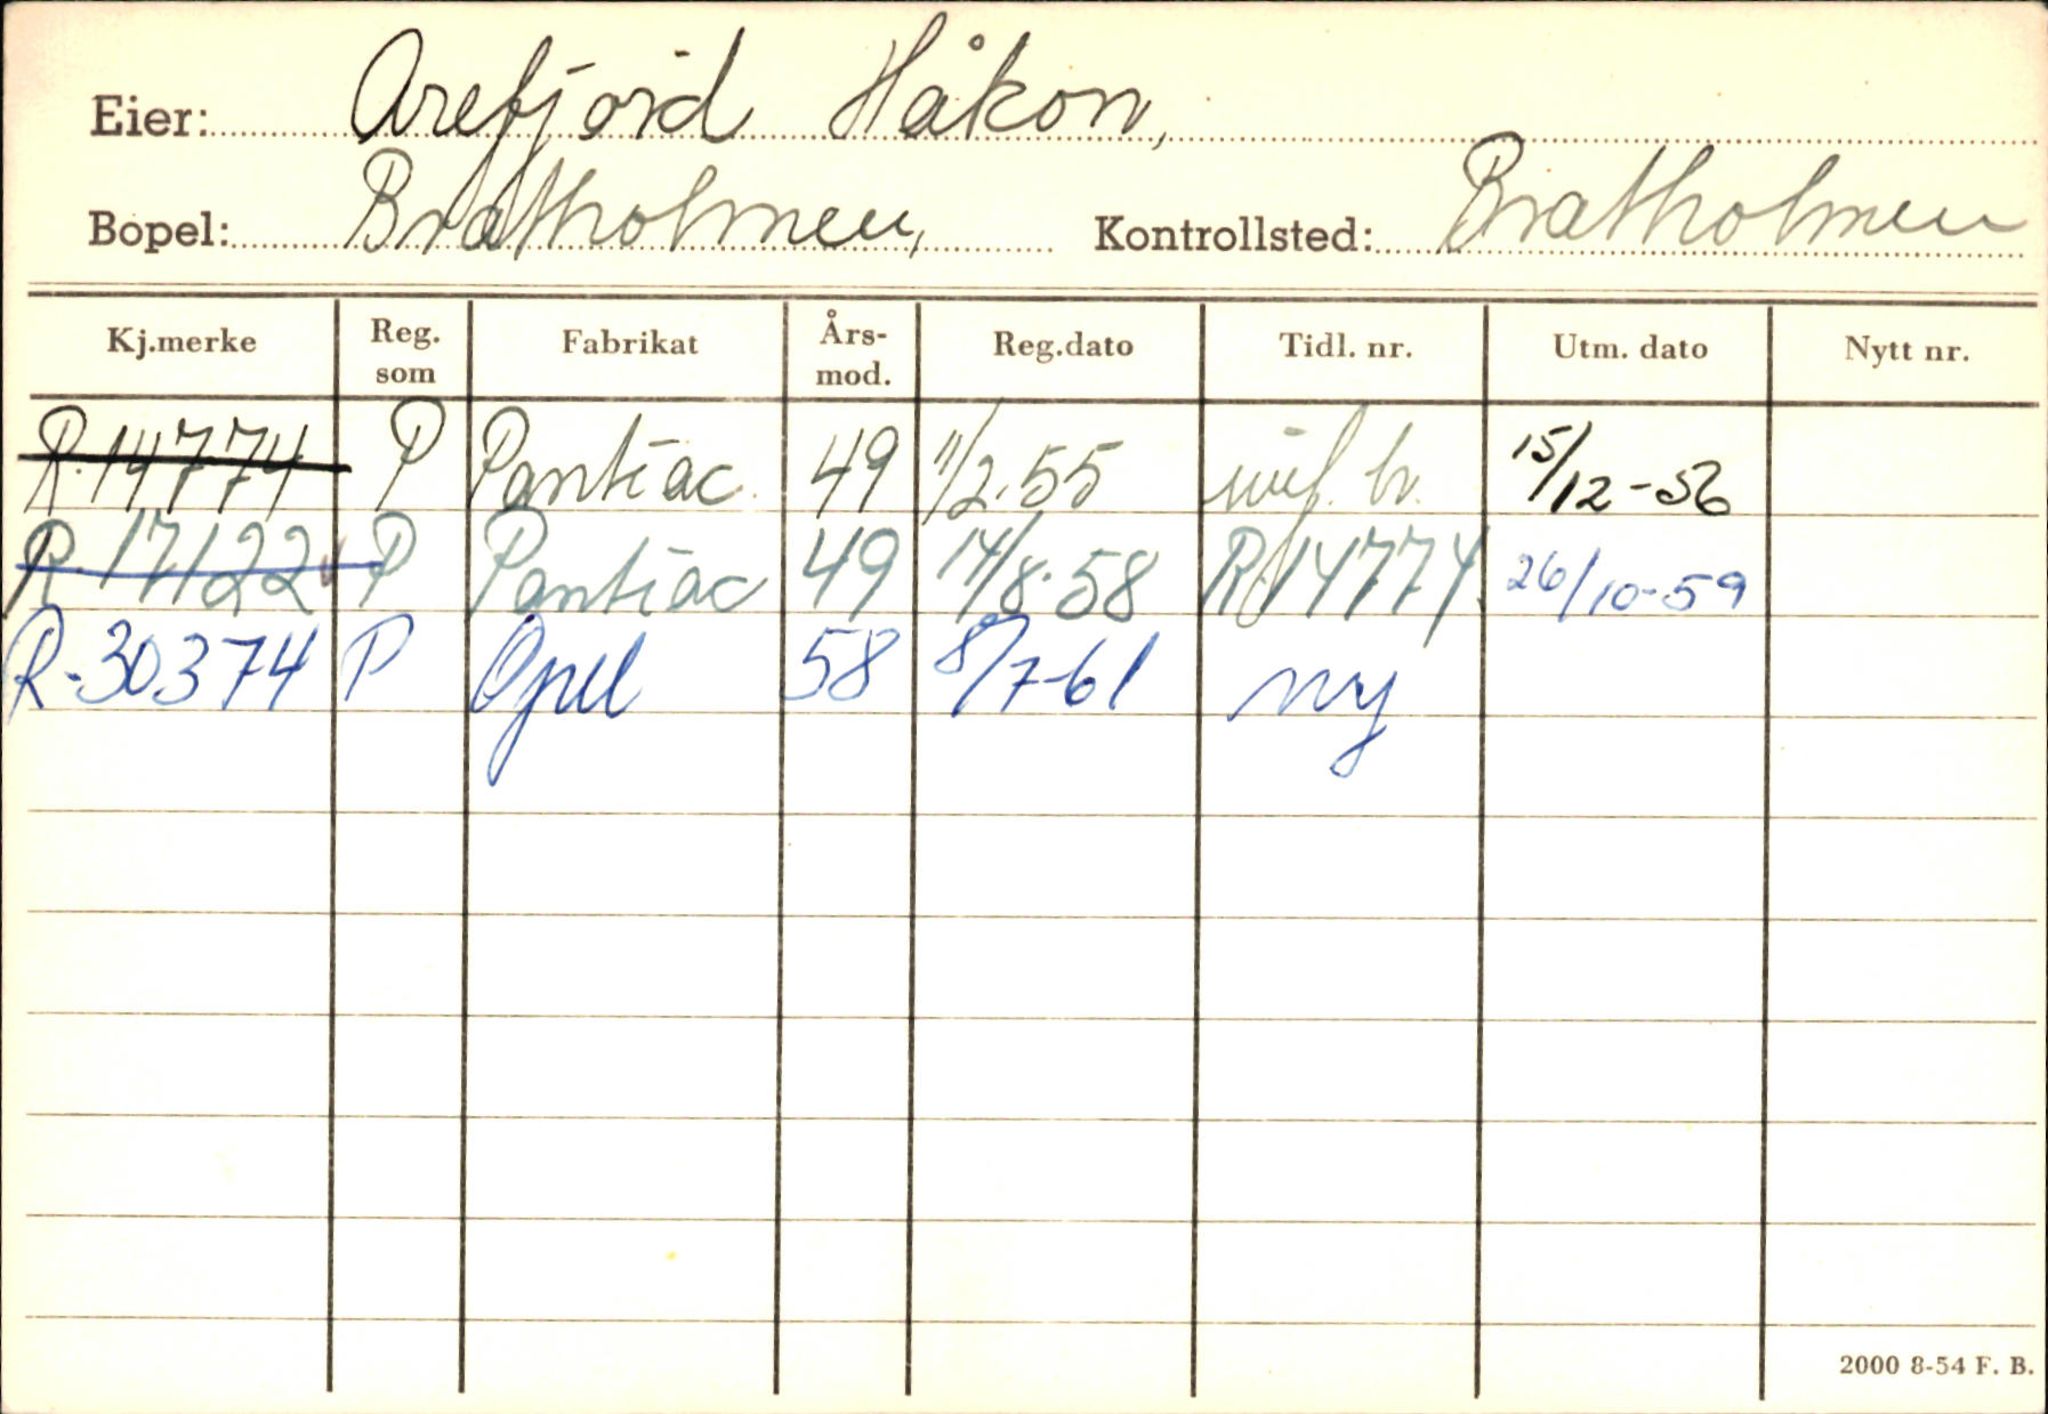 Eier: Arefjord Håkon,
Bopel: Bratholmen, Kontrollsted: Bratholmen
Kj.merke Reg. som Fabrikat Års-mod. Reg.dato Tidl. nr. Utm. dato Nytt nr.
R.14774 P Pontiac. 49 11/2.55 15/12-56
R.17122 P Pontiac 49 14/8.58 R.14774. 26/10-59
R-30374 P Opel 58 8/7-61 ny
2000 8-54 F. B.